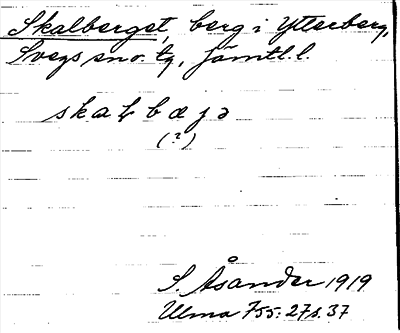 Skalberget, berg i Ytterberg,
Svegs sn o. tg, Jämtl. l.
skaɫbæjə
(?)
S. Åsander 1919
Ulma 755:27 s. 37